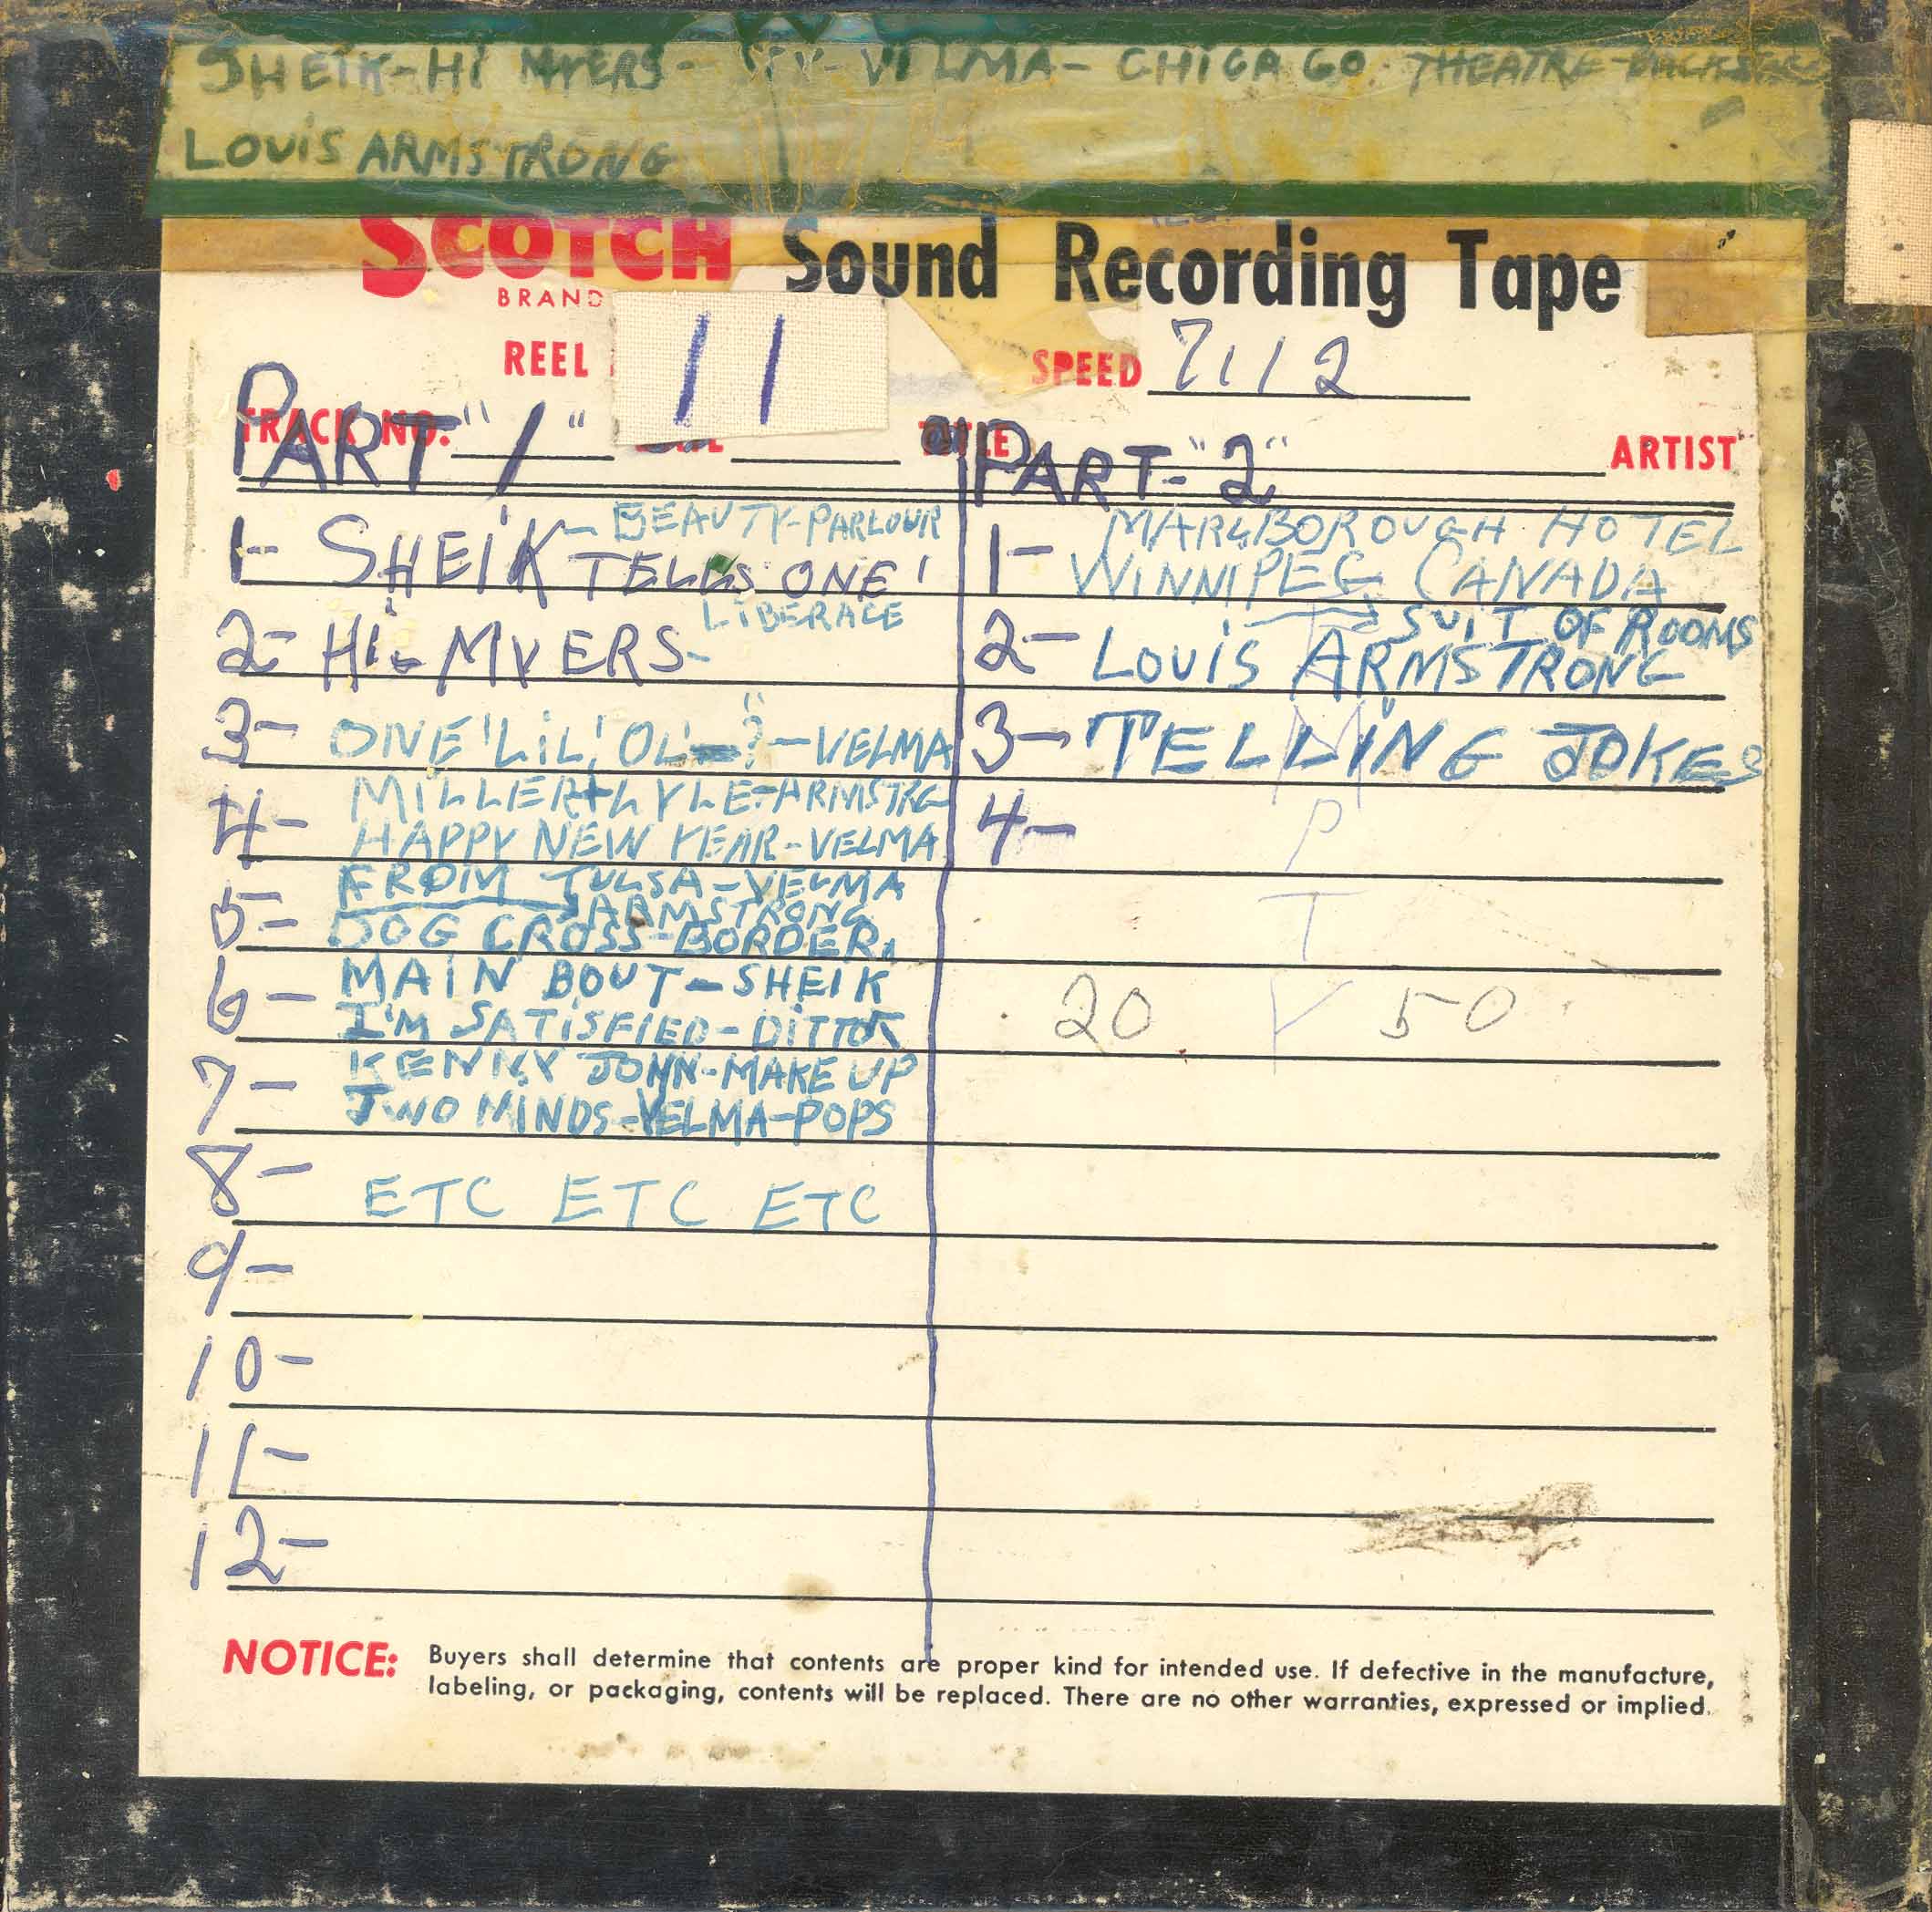 SHEIK-HI MYERS- VELMA- CHICAGO THEATRE-
LOUIS ARMSTRONG
SCOTCH Sound Recording Tape
BRAND
REEL 11 SPEED 7 1/2
TRACK NO. ARTIST
PART "1" PART-"2"
1- SHEIK- BEAUTY-PARLOUR
TELLS ONE'
2- Hi- MYERS- LIBERACE
3- ONE 'LIL' OL'-?-VELMA
4- MILLER+LYLE-ARMSTRG
HAPPY NEW YEAR-VELMA
5- FROM TULSA-VELMA
ARMSTRONG
DOG CROSS-BORDER.
6- MAIN BOUT-SHEIK
I'M SATISFIED-DITTO
7- KENNY JOHN-MAKE UP
TWO MINDS-VELMA-POPS
8- ETC ETC ETC
9-
10-
11-
12-
1- MARLBOROUGH HOTEL
WINNIPEG CANADA
SUIT OF ROOMS
2- LOUIS ARMSTRONG
3- TELLING JOKES
4-
M
P
T
20 Y 50
NOTICE: Buyers shall determine that contents are proper kind for intended use. If defective in the manufacture,
labeling, or packaging, contents will be replaced. There are no other warranties, expressed or implied.